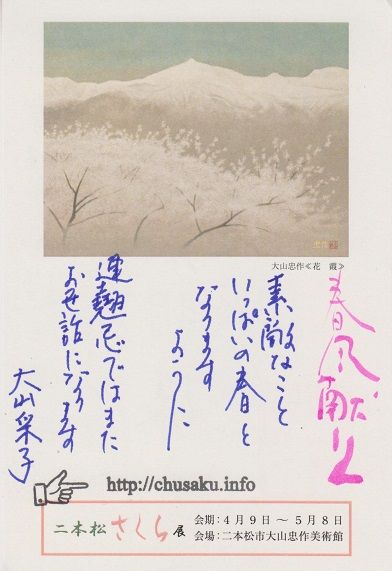 大山忠作≪花 霞≫
春风献上
素敵なこと
いっぱいの春と
なります
ように
連翹忌ではまた
お世話になります
大山采子
http://chusaku.info
二本松さくら展
会期：4月9日～5月8日
会場：二本松市大山忠作美術館